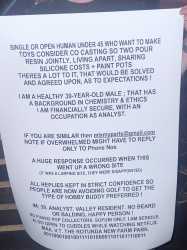 SINGLE OR OPEN HUMAN UNDER 45 WHO WANT TO MAKE
TOYS CONSIDER CO CASTING SO TWO POUR
RESIN JOINTLY, LIVING APART, SHARING
SILICONE COSTS + PAINT POTS
THERES A LOT TO IT, THAT WOULD BE SOLVED
AND AGREED UPON, AS TO EXPECTATIONS !
I AM A HEALTHY 39-YEAR-OLD MALE ; THAT HAS
A BACKGROUND IN CHEMISTRY & ETHICS
I AM FINANCIALLY SECURE, WITH AN
OCCUPATION AS ANALYST.
IF YOU ARE SIMILAR then
NOTE IF OVERWHELMED MIGHT HAVE TO REPLY
ONLY TO Phone Nos
A HUGE RESPONSE OCCURRED WHEN THIS
WENT UP A WRONG SITE
(IT WAS A LIMPING SITE, THEY WERE DISAPPOINTED)
ALL REPLIES KEPT IN STRICT CONFIDENCE SO
PEOPLE ARE NOW AVOIDING GOLF TO GET THE
TYPE OF HOBBY BUDDY PREFERRED
MR. SI. ANALYST. VALLEY RESIDENT - NO BEARD
OR BALDING, HAPPY PERSON !
MA, KY, 77. THE ROTUNDA NEW FARM PARK.